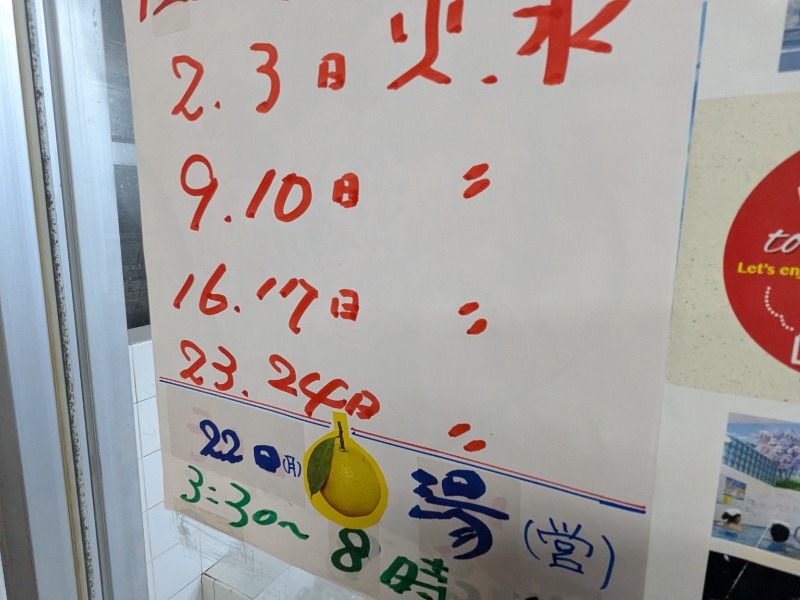 火.水
2.3日
9.10日 〃
16.17日 〃
23.24日 〃
22日(月) 湯(営)
3:30~8時
to
Let's en